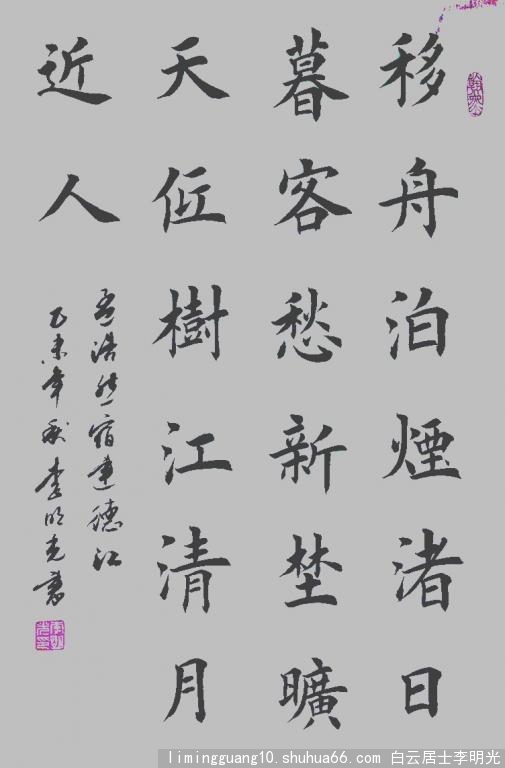 移舟泊煙渚日
暮客愁新埜曠
天低樹江清月
近人
孟浩然宿建德江
乙未年秋李明光書
limingguang10.shuhua66.com 白云居士李明光